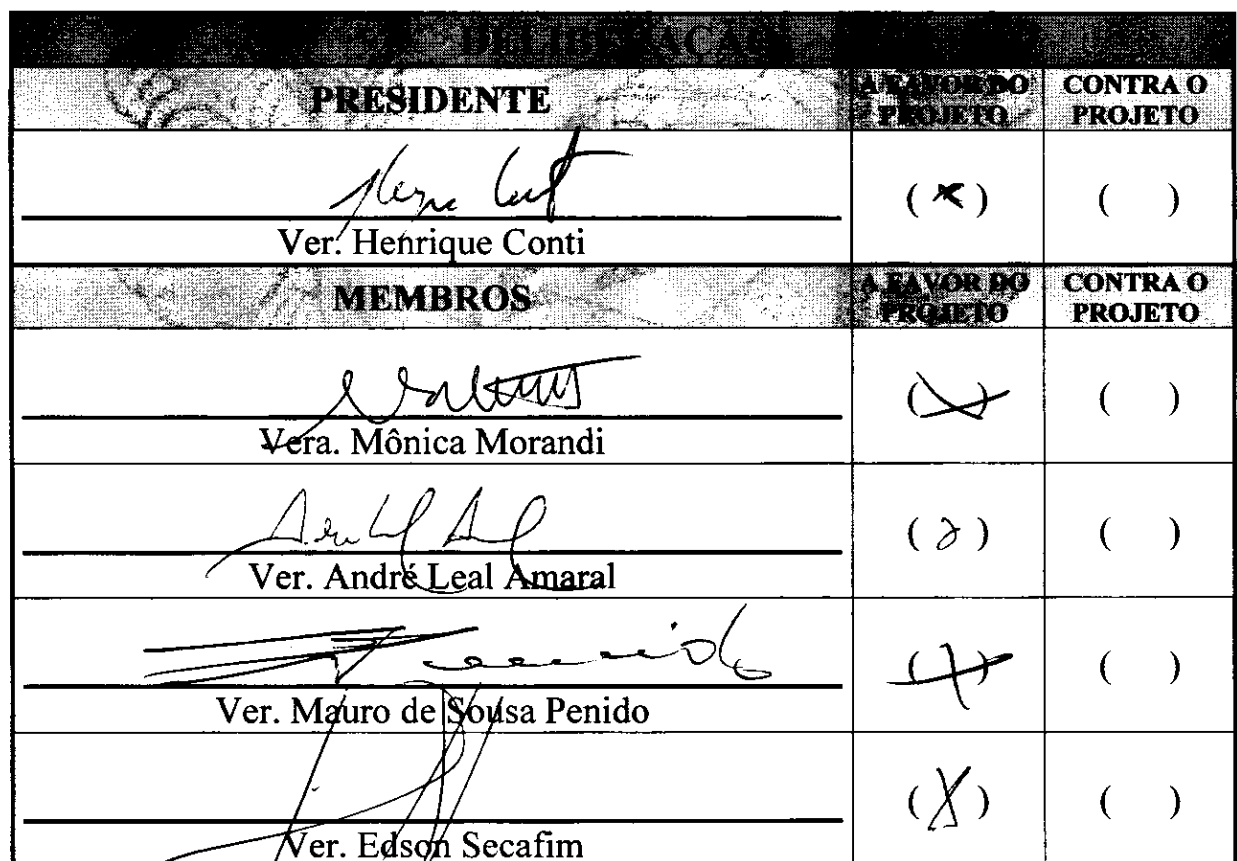 DELIBERAÇÃO
PRESIDENTE
A FAVOR DO PROJETO
CONTRA O PROJETO
( x )
( )
Ver. Henrique Conti
MEMBROS
A FAVOR DO PROJETO
CONTRA O PROJETO
( x )
( )
Vera. Mônica Morandi
( )
Ver. André Leal Amaral
( x )
( )
Ver. Mauro de Sousa Penido
( x )
( )
Ver. Edson Secafim